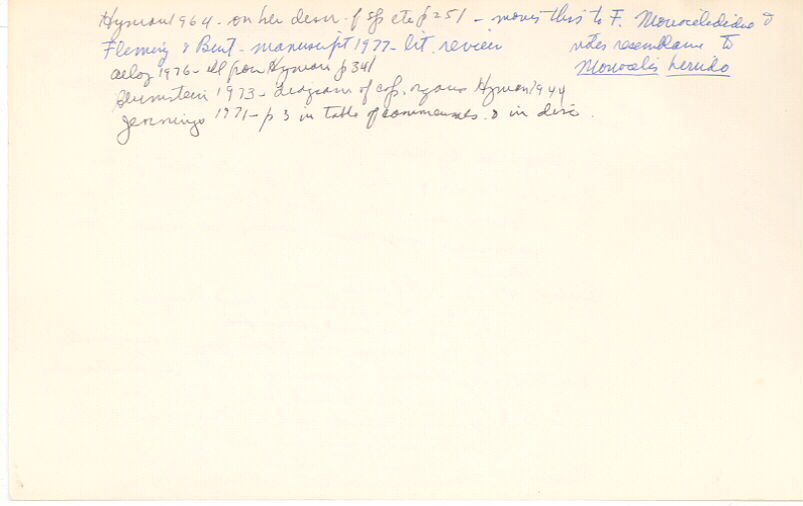 Hyman 1964 - on her descr. of sp etc p 251 - moves this to F. Monocelididae &
Fleming & Burt - manuscript 1977 - lit. review notes resemblance to
1976 - ill from Hyman p 341 Monocelis
1973 - diagram of cop. organs Hyman 1944
Jennings 1971 - p 3 in table of commensals & in disc.